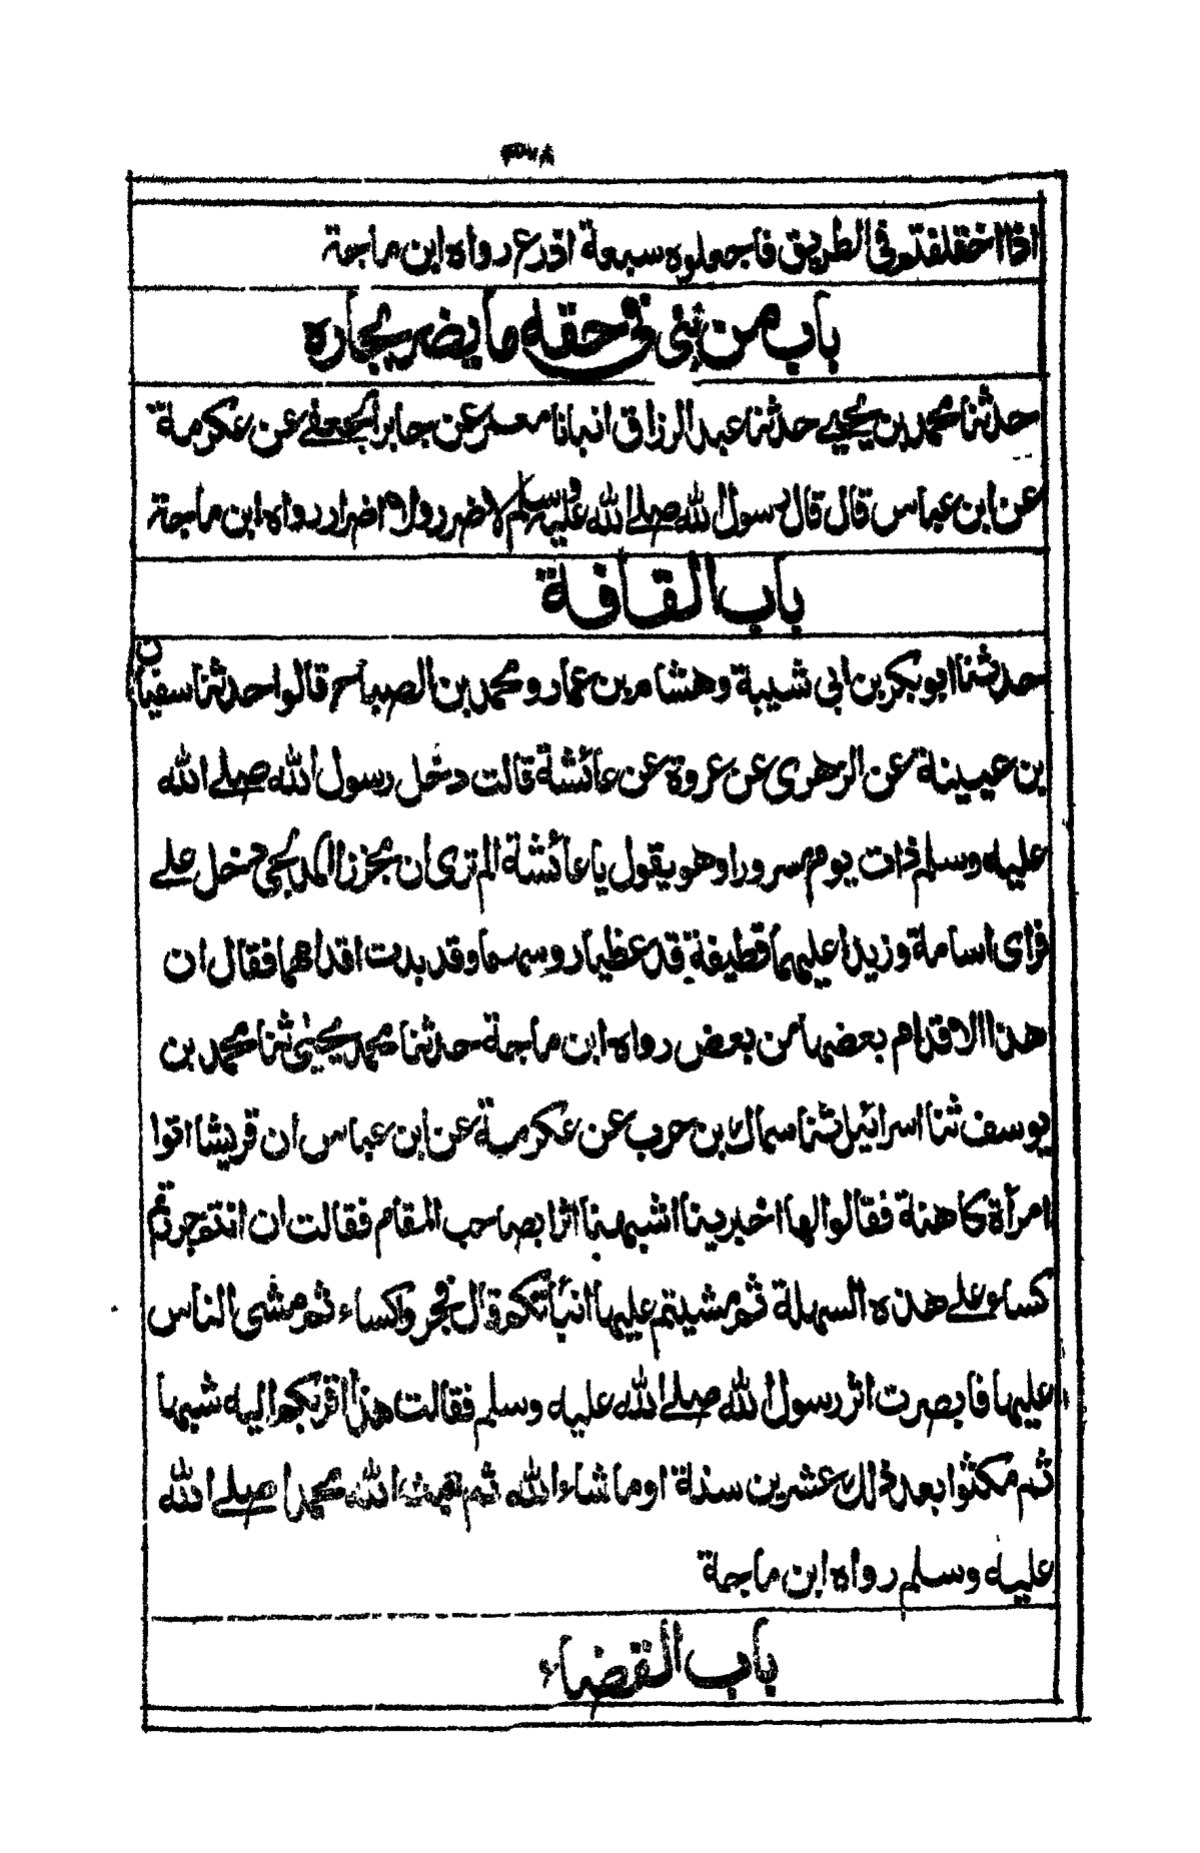 اذا اختلفتم في الطريق فاجعلوه سبعة اذرع رواه ابن ماجة
باب من بنى في حقه ما يضر بجاره
حدثنا محمد بن يحيى حدثنا عبد الرزاق انبانا معمر عن جابر الجعفي عن عكرمة
عن ابن عباس قال قال رسول الله صلى الله عليه وسلم لا ضرر ولا اضرار رواه ابن ماجة
باب القافة
حدثنا ابو بكر بن ابي شيبة وهشام بن عمار ومحمد بن الصباح قالوا حدثنا سفيان
بن عيينة عن الزهري عن عروة عن عائشة قالت دخل رسول الله صلى الله
عليه وسلم ذات يوم مسرورا وهو يقول يا عائشة الم تري ان مجززا المدلجي دخل علي
فراى اسامة وزيدا عليهما قطيفة قد غطيا روسهما وقد بدت اقدامهما فقال ان
هذا الاقدام بعضها من بعض رواه ابن ماجة حدثنا محمد يحيى ثنا محمد بن
يوسف ثنا اسرائيل ثنا سماك بن حرب عن عكرمة عن ابن عباس ان قريشا اتوا
امرأة كاهنة فقالوا لها اخبرينا اشبهنا اثرا بصاحب المقام فقالت ان انتم جررتم
كساء على هذه السهلة ثم مشيتم عليها انبأتكم قال فجروا كساء ثم مشى الناس
عليها فابصرت اثر رسول الله صلى الله عليه وسلم فقالت هذا اقربكم اليه شبها
ثم مكثوا بعد ذلك عشرين سنة او ما شاء الله ثم بعث الله محمدا صلى الله
عليه وسلم رواه ابن ماجة
باب القضاء